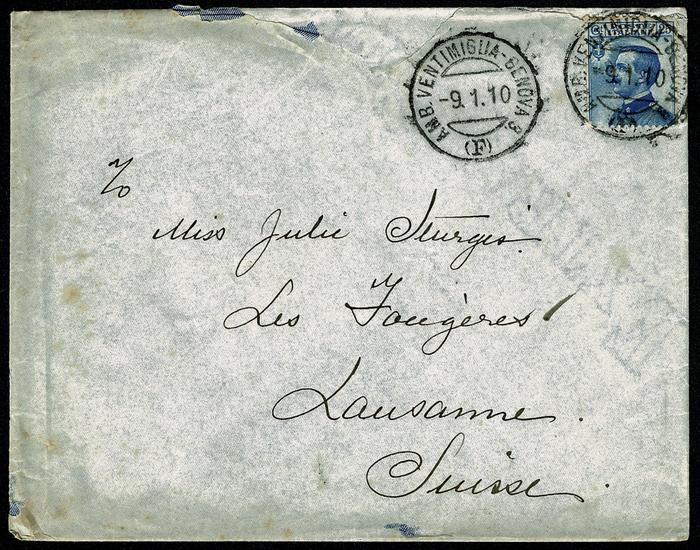 AMB. VENTIMIGLIA-GENOVA 3.
-9.1.10
(F)
25
AMB. VENTIMIGLIA-GENOVA
-9.1.10
(F)
To
Miss Julie Sturgis.
Les Fougères
Lausanne.
Suisse.